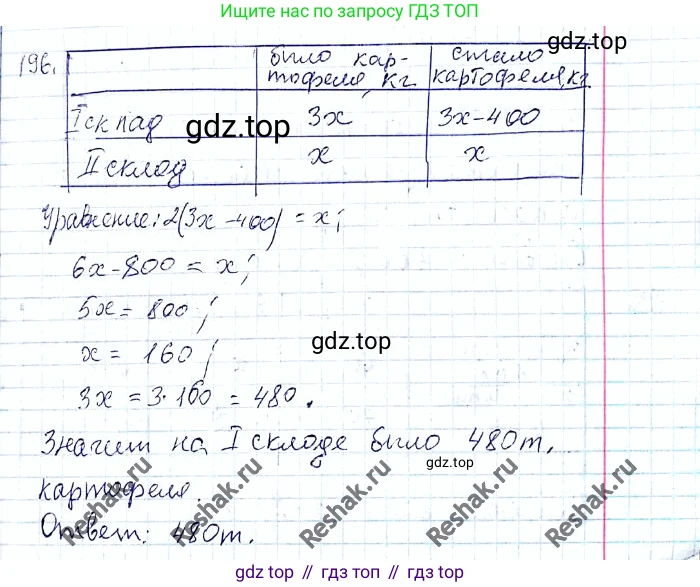 Ищите нас по запросу ГДЗ ТОП
196. было кар- стало
тофеля, кг картофеля, кг
I склад 3x 3x-400
gdz.top
II склад x x
Уравнение: 2(3x-400) = x;
6x-800 = x;
5x = 800;
x = 160;
gdz.top
3x = 3·160 = 480.
Значит на I складе было 480т.
gdz.top
картофеля.
Ответ: 480т.
Reshak.ru Reshak.ru Reshak.ru Reshak.ru
gdz.top // гдз.top // гдз.топ